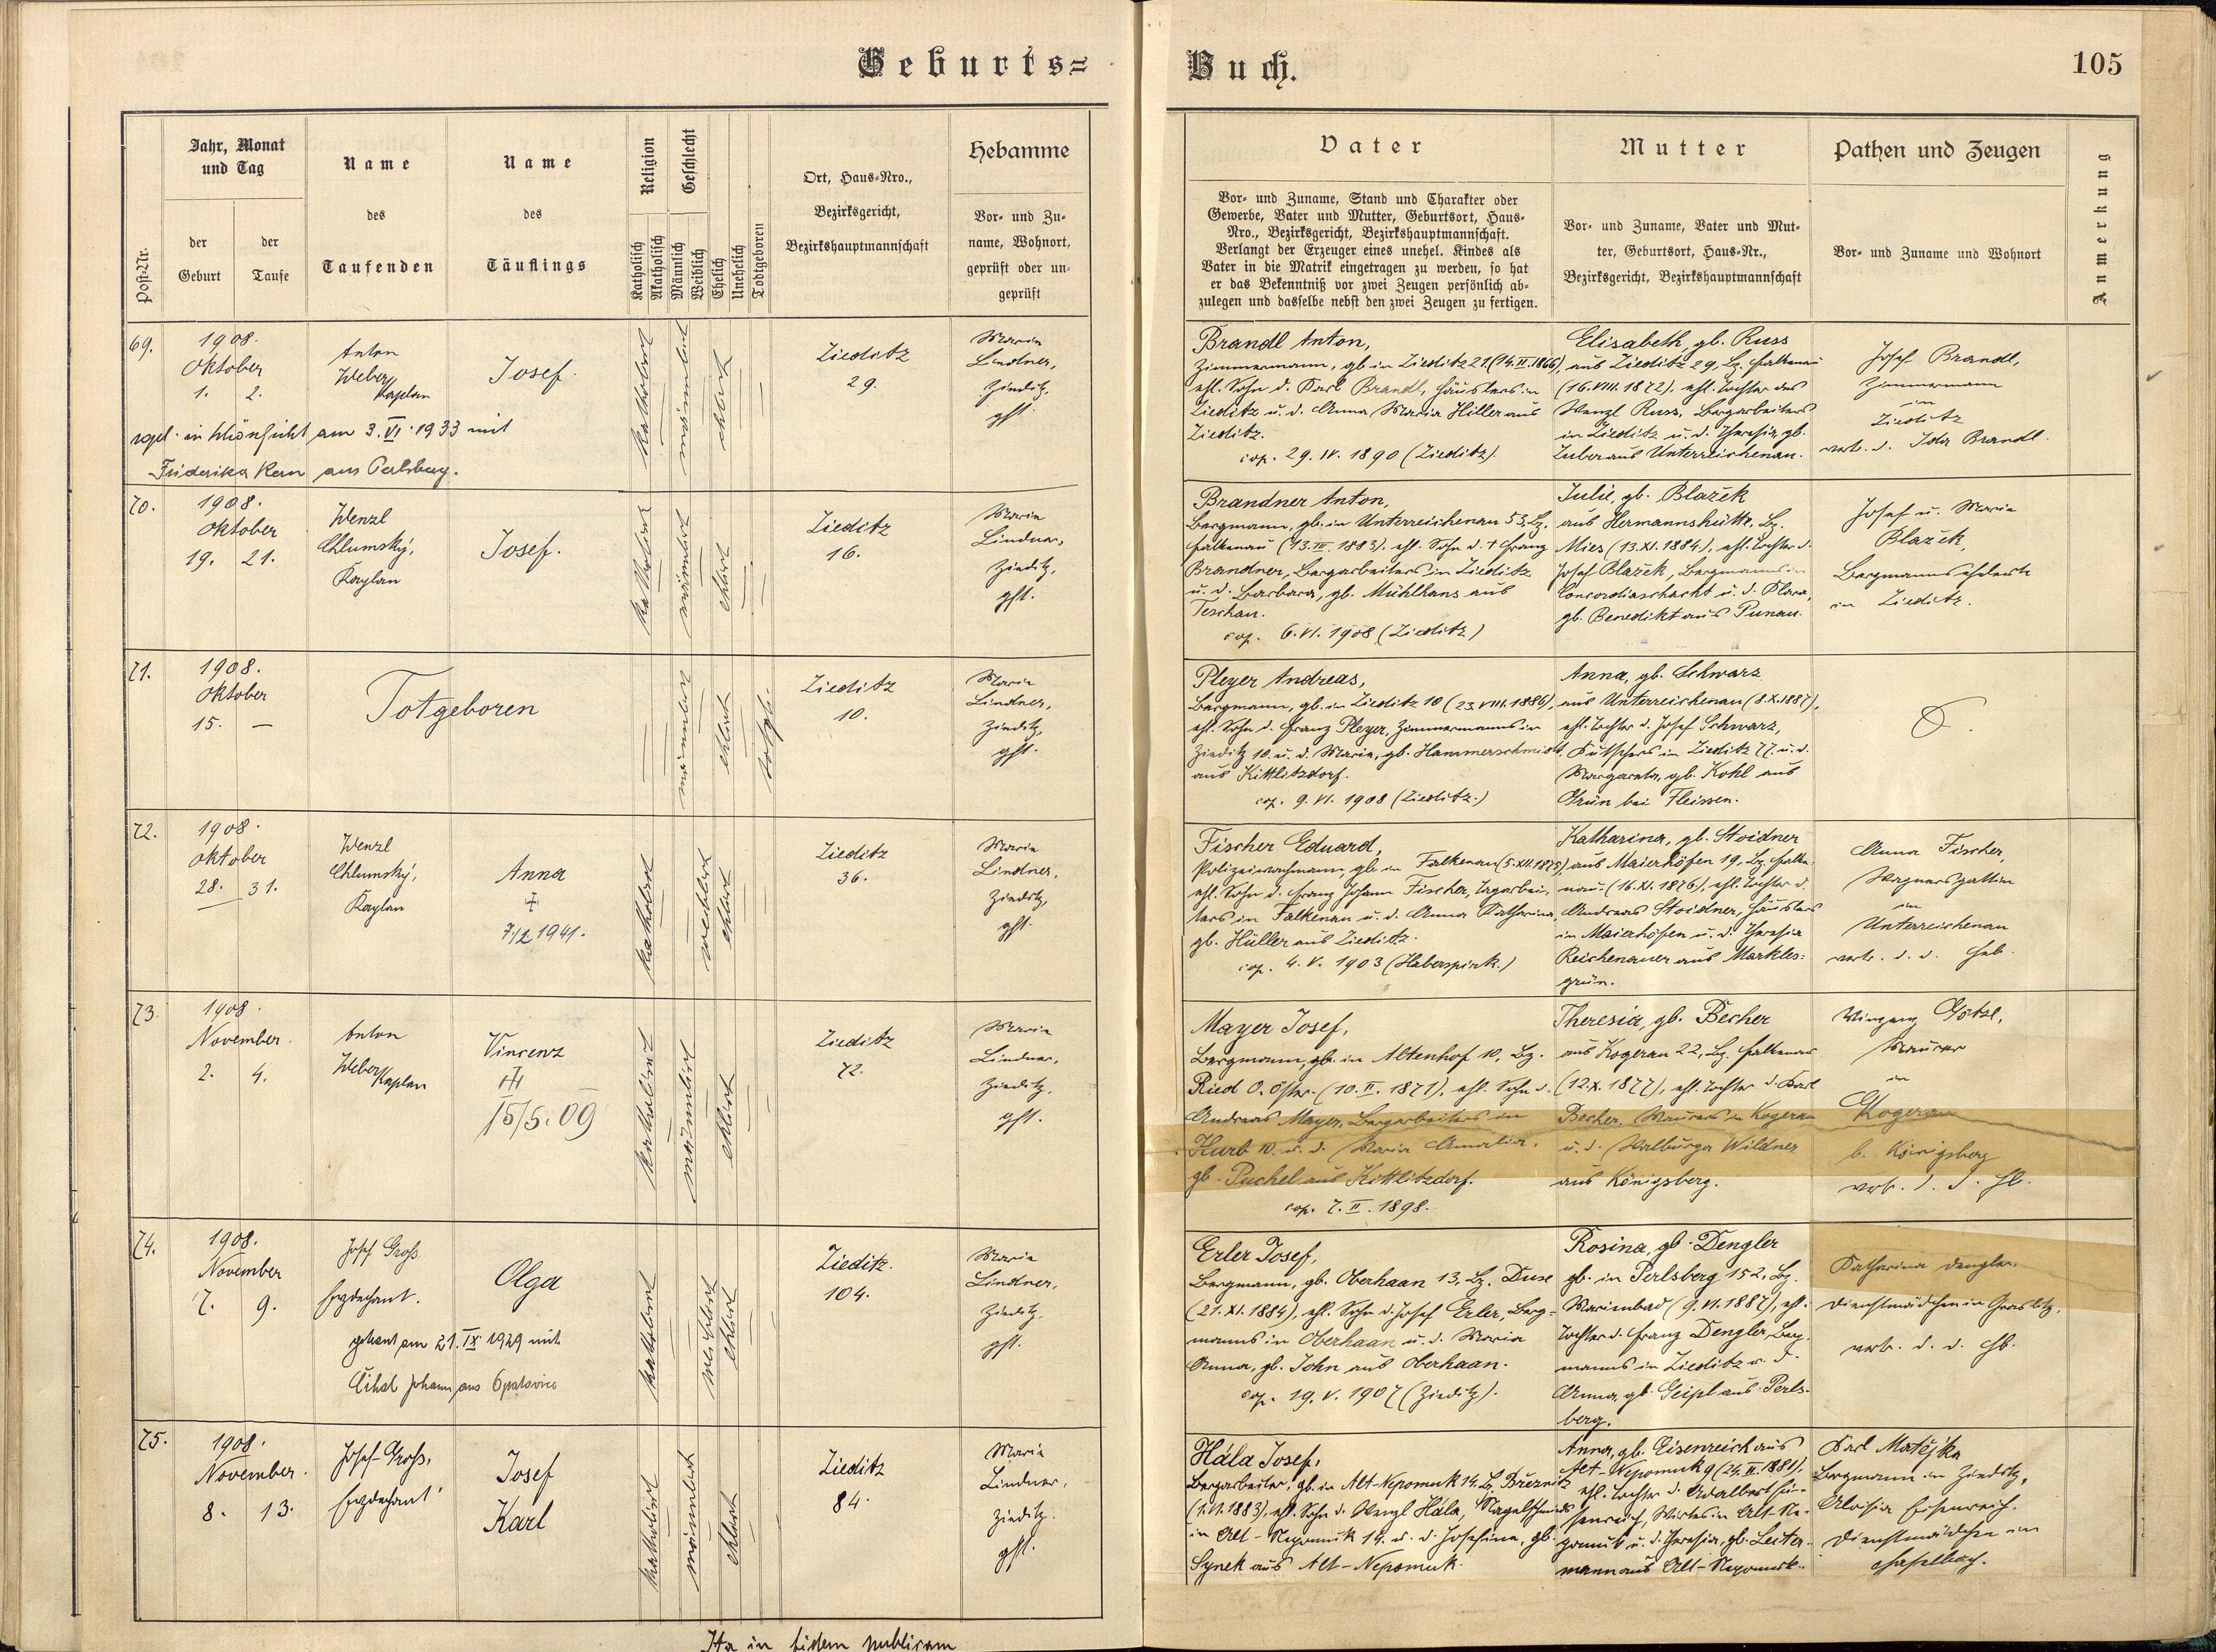 Geburts=
Buch.
105
Post-Nr.
Jahr, Monat
und Tag
der
Geburt
der
Taufe
Name
des
Taufenden
Name
des
Täuflings
Religion
Katholisch
Akatholisch
Geschlecht
Männlich
Weiblich
Ehelich
Unehelich
Todtgeboren
Ort, Haus-Nro.,
Bezirksgericht,
Bezirkshauptmannschaft
Hebamme
Vor- und Zu-
name, Wohnort,
geprüft oder un-
geprüft
Vater
Vor- und Zuname, Stand und Charakter oder
Gewerbe, Vater und Mutter, Geburtsort, Haus-
Nro., Bezirksgericht, Bezirkshauptmannschaft.
Verlangt der Erzeuger eines unehel. Kindes als
Vater in die Matrik eingetragen zu werden, so hat
er das Bekenntniß vor zwei Zeugen persönlich ab-
zulegen und dasselbe nebst den zwei Zeugen zu fertigen.
Mutter
Vor- und Zuname, Vater und Mut-
ter, Geburtsort, Haus-Nr.,
Bezirksgericht, Bezirkshauptmannschaft
Pathen und Zeugen
Vor- und Zuname und Wohnort
Anmerkung
69.
1908.
Oktober
1. 2.
Anton
Weber
Kaplan
Josef.
katholisch
männlich
ehlich
Zieditz
29.
Maria
Lindner,
Zieditz,
gft.
in Schönficht am 3. VI. 1933 mit
Friderika Kern aus Perlsberg.
Brandl Anton,
Zimmermann, gb. in Zieditz 21 (14. II. 1866),
ehl. Sohn d. Karl Brandl, Häuslers in
Zieditz u. d. Anna Maria Hüller aus
Zieditz.
cop. 29. IV. 1890 (Zieditz).
Elisabeth, gb. Russ
aus Zieditz 29, Bz. Falkenau
(16. VIII. 1872), ehl. Tochter des
Wenzl Russ, Bergarbeiters
in Zieditz u. d. Theresia, gb.
Zuber aus Unterreichenau.
Josef Brandl,
Zimmermann
in
Zieditz
vertr. d. Ida Brandl.
70.
1908.
Oktober
19. 21.
Wenzl
Chlumský,
Kaplan
Josef.
katholisch
männlich
ehlich
Zieditz
16.
Maria
Lindner,
Zieditz,
gft.
Brandner Anton,
Bergmann, gb. in Unterreichenau 53, Bz.
Falkenau (13. III. 1883), ehl. Sohn d. † Franz
Brandner, Bergarbeiters in Zieditz
u. d. Barbara, gb. Mühlhans aus
Teschau.
cop. 6. VI. 1908 (Zieditz)
Julie, gb. Blažek
aus Hermannshütte, Bz.
Mies (13. XI. 1884), ehl. Tochter d.
Josef Blažek, Bergmanns in
Concordiaschacht u. d. Klara,
gb. Benedikt aus Punau.
Josef u. Maria
Blažek,
Bergmannseheleute
in Zieditz.
71.
1908.
Oktober
15. —
Totgeboren
männlich
ehlich
totgb.
Zieditz
10.
Maria
Lindner,
Zieditz,
gft.
Pleyer Andreas,
Bergmann, gb. in Zieditz 10 (23. VIII. 1886),
ehl. Sohn d. Franz Pleyer, Zimmermanns in
Zieditz 10. u. d. Maria, gb. Hammerschmidt
aus Kittlitzdorf.
cop. 9. VI. 1908 (Zieditz.)
Anna, gb. Schwarz
aus Unterreichenau (8. X. 1887),
ehl. Tochter d. Josef Schwarz,
Kutschers in Zieditz 77. u. d.
Margareta, gb. Kohl aus
Grün bei Fleissen.
72.
1908.
Oktober
28. 31.
Wenzl
Chlumský,
Kaplan
Anna
†
7/2 1941.
katholisch
weiblich
ehlich
Zieditz
36.
Maria
Lindner,
Zieditz,
gft.
Fischer Eduard,
Polizeiwachmann, gb. in Falkenau (5. XII. 1875),
ehl. Sohn d. Franz Johann Fischer, Tagarbei-
ters in Falkenau u. d. Anna Katharina,
gb. Hüller aus Zieditz.
cop. 4. V. 1903 (Haberspirk.)
Katharina, gb. Stoidner
aus Maierhöfen 19, Bz. Falke-
nau (16. XI. 1876), ehl. Tochter d.
Andreas Stoidner, Häuslers
in Maierhöfen u. d. Theresia
Reichenauer aus Markles-
grün.
Anna Fischer,
Wagnersgattin
in
Unterreichenau
vertr. d. d. Heb.
73.
1908.
November.
2. 4.
Anton
Weber
Kaplan
Vincenz
†
15/5. 09
katholisch
männlich
ehlich
Zieditz
72.
Maria
Lindner,
Zieditz,
gft.
Mayer Josef,
Bergmann, gb. in Altenhof 10, Bz.
Ried O. Öster. (10. II. 1871), ehl. Sohn d.
Andreas Mayer, Bergarbeiters in
10. u. d. Maria Amalia,
gb. Puchel aus Kittlitzdorf.
cop. 7. II. 1898.
Theresia, gb. Becher
aus Kogerau 22, Bz. Falkenau
(12. X. 1877), ehl. Tochter d. Karl
Becher, Maurers in Kogerau
u. d. Walburga Wildner
aus Königsberg.
Vinzenz Götzl,
Maurer
in
Kogerau
b. Königsberg
vertr. d. d. Hb.
74.
1908.
November
7. 9.
Josef Groß
Erzdechant.
Olga
katholisch
weiblich
ehlich
Zieditz.
104.
Maria
Lindner,
Zieditz,
gft.
getraut am 21. IX 1929 mit
Čihal Johann, aus Opatovice
Erler Josef,
Bergmann, gb. Oberhaan 13, Bz. Dux
(21. XI. 1884), ehl. Sohn d. Josef Erler, Berg-
manns in Oberhaan u. d. Maria
Anna, gb. John aus Oberhaan.
cop. 19. V. 1907 (Zieditz).
Rosina, gb. Dengler
gb. in Perlsberg 152, Bz.
Marienbad (9. VI. 1887), ehl.
Tochter d. Franz Dengler, Berg-
manns in Zieditz u. d.
Anna, gb. Geipl aus Perls-
berg.
Katharina Dengler,
Dienstmädchen in Graslitz,
vertr. d. d. Hb.
75.
1908.
November.
8. 13.
Josef Groß,
Erzdechant
Josef
Karl
katholisch
männlich
ehlich
Zieditz
84.
Maria
Lindner,
Zieditz.
gft.
Hála Josef,
Bergarbeiter, gb. in Alt-Nepomuk 14. Bz. Březnitz
(1. VI. 1883), ehl. Sohn d. Wenzl Hála, Nagelschmieds
in Alt-Nepomuk 14. u. d. Josefine, gb.
Synek aus Alt-Nepomuk.
Anna, gb. Eisenreich aus
Alt-Nepomuk 9 (24. II. 1881),
ehl. Tochter d. Adalbert Ei-
senreich, Wirtes in Alt-Ne-
pomuk u. d. Theresia, gb. Leiter-
mann aus Alt-Nepomuk.
Karl Matějka
Bergmann in Zieditz,
Aloisia Eisenreich.
Dienstmädchen in
Haselbach.
Ita in fidem publicam